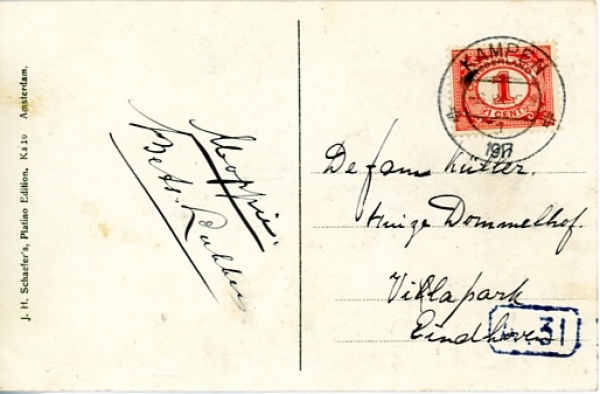 J. H. Schaefer's, Platino Edition, Ka 19 Amsterdam.
Moppie.
Bets.
KAMPEN
NEDERLAND
1
CENT
1917
De fam
Huize Dommelhof.
Villapark
Eindhoven
31